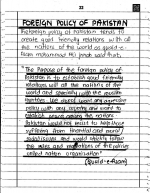 FOREIGN POLICY OF PAKISTAN
The foreign policy of Pakistan tends to
create good friendly relations with all
the nations of the world as Quaid-e-
Azam Mohammad Ali Jinnah said that.
"The Purpose of the foreign policy of
Pakistan is to establish good friendly
relations with all the nations of the
world and specially with the
countries. We
policy with any country and want to
establish peace among the nations.
Pakistan would not resist to help those
suffering from
and would
the rules and of the
united nation organisation"
(Quaid-e-Azam)